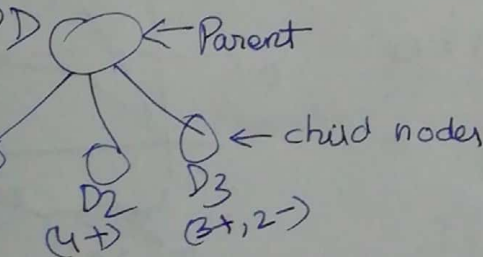 D ← Parent
← child nodes
D2 D3
(4+) (3+, 2-)